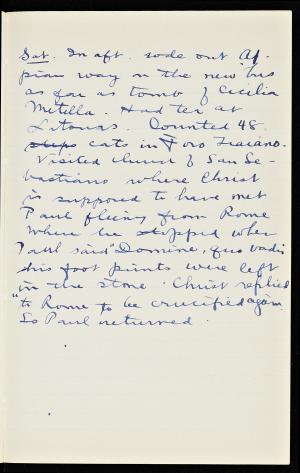 Sat. In aft. rode out Ap-
pian way on the new bus
as far as tomb of Cecilia
Metilla. Had tea at
Counted 48
steps cats in Foro Traiano.
Visited church of San Se-
bastiano where Christ
is supposed to have met
Paul fleeing from Rome
Where he stopped when
Paul said "Domine, quo vadis
his foot prints were left
in the stone. Christ replied
"to Rome to be crucified again
So Paul returned.